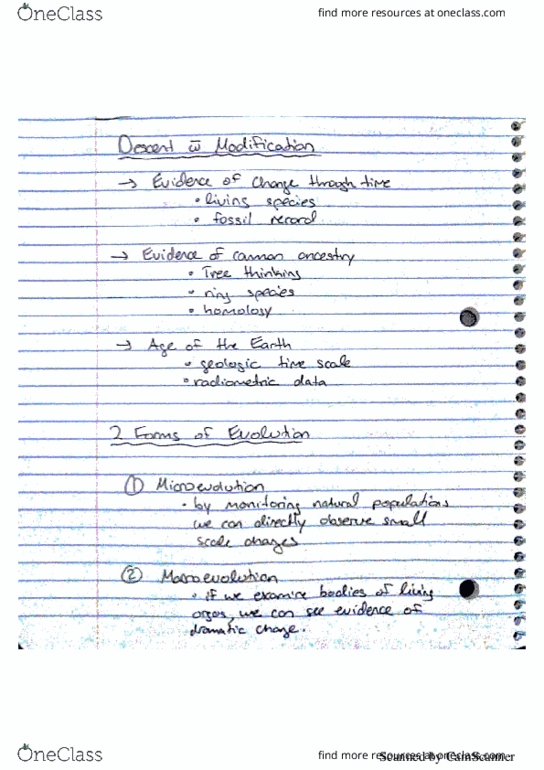 OneClass
find more resources at oneclass.com
Descent w̄ Modification
→ Evidence of Change through time
• living species
• fossil record
→ Evidence of common ancestry
• Tree thinking
• ring species
• homology
→ Age of the Earth
• geologic time scale
• radiometric data
2 Forms of Evolution
① Microevolution
• by monitoring natural populations
we can directly observe small
scale changes
② Macroevolution
• if we examine bodies of living
orgos, we can see evidence of
dramatic change.
OneClass
find more resources at oneclass.com
Scanned by CamScanner